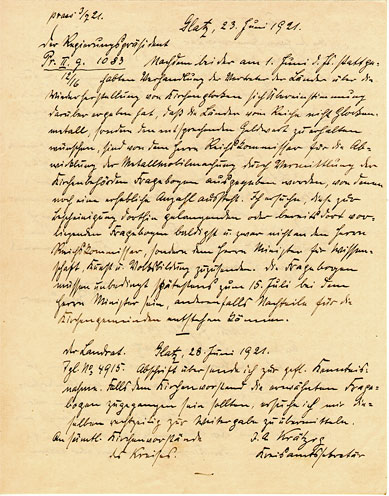 praes 2/7 21.
Glatz, 23. Juni 1921.
Der Regierungspräsident
Pr. II. g. 1083 Nachdem bei der am 1. Juni d. J. stattge-
12/6 habten Verhandlung der Vertreter der Länder über die
Wiederherstellung von Kirchenglocken sich Übereinstimmung
darüber ergeben hat, daß die Länder vom Reiche nicht Glocken-
metall, sondern den entsprechenden Geldwert zu erhalten
wünschen, sind von dem Herrn Reichskommissar für die Ab-
wicklung der Metallmobilmachung durch Vermittlung der
Kirchenbehörden Fragebogen ausgegeben worden, von denen
noch eine erhebliche Anzahl aussteht. Ich ersuche, diese zur
Bescheinigung dorthin gelangenden oder bereits dort vor-
liegenden Fragebogen baldigst u zwar nicht an den Herrn
Reichskommissar, sondern dem Herrn Minister für Wissen-
schaft, Kunst u. Volksbildung zuzusenden. Die Fragebogen
müssen unbedingt spätestens zum 15. Juli bei dem
Herrn Minister sein, andernfalls Nachteile für die
Kirchengemeinden entstehen können.
Der Landrat. Glatz, 28 Juni 1921.
Tgl No. 4915. Abschrift übersende ich zur gefl. Kenntnis-
nahme. Falls dem Kirchenvorstand die erwähnten Frage-
bogen zugegangen sein sollten, ersuche ich mir die-
selben rechtzeitig zur Weitergabe zu übermitteln.
An sämtl. Kirchenvorstände
des Kreises.
Kreisamtssekretär